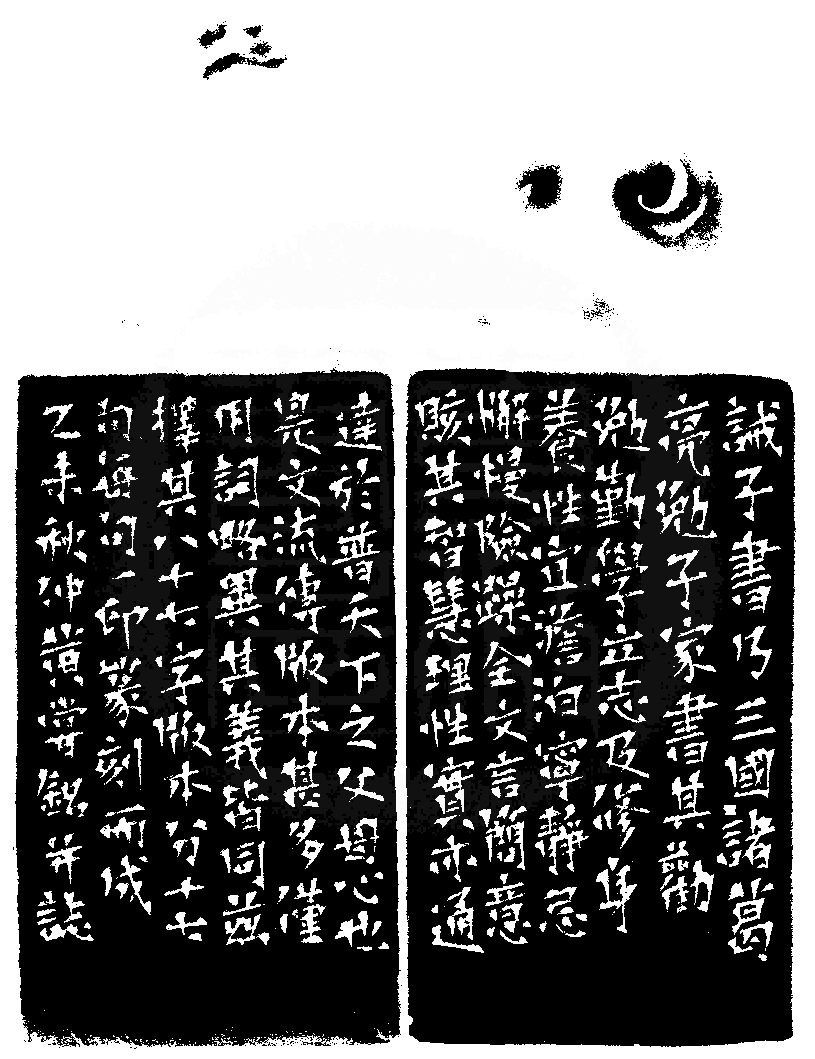 誡子書乃三國諸葛
亮勉子家書其勸
勉勤學立志及修身
養性宜澹泊寧靜忌
懈慢險躁全文言簡意
賅其智慧理性實亦通
達於普天下之父母心也
是文流傳版本甚多僅
用詞略異其義皆同茲
擇其八十七字版本分十七
句每句一印篆刻而成
乙未秋仲黃嘗銘并誌